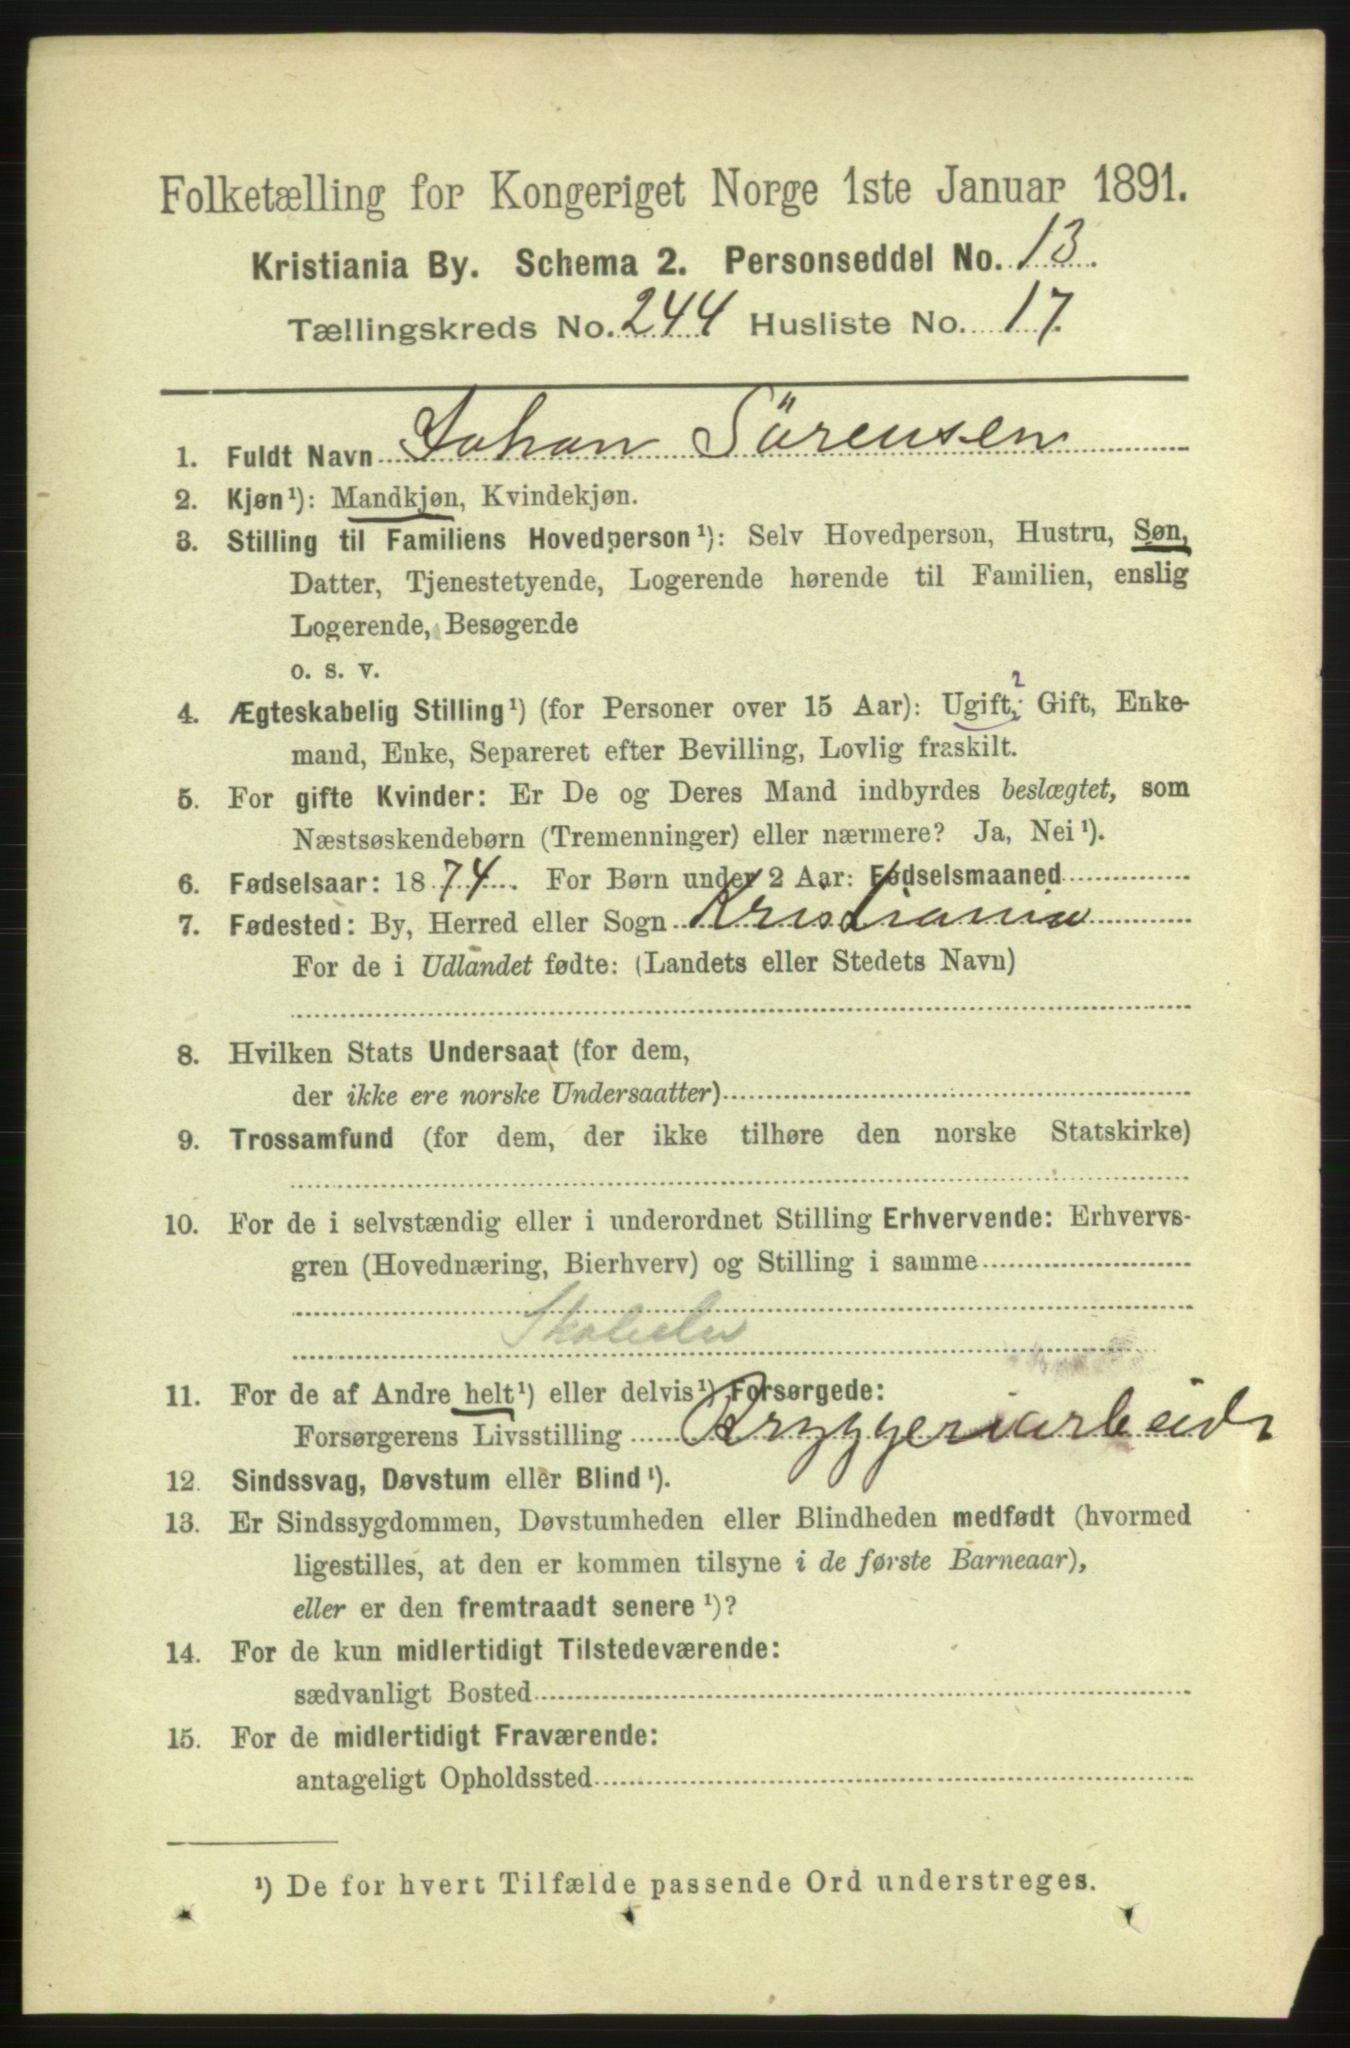 Folketælling for Kongeriget Norge 1ste Januar 1891.
Kristiania By. Schema 2. Personseddel No. 13.
Tællingskreds No. 244 Husliste No. 17.
1. Fuldt Navn Johan Sörensen
2. Kjøn¹): Mandkjøn, Kvindekjøn.
3. Stilling til Familiens Hovedperson¹): Selv Hovedperson, Hustru, Søn,
Datter, Tjenestetyende, Logerende hørende til Familien, enslig
Logerende, Besøgende
o. s. v.
2
4. Ægteskabelig Stilling¹) (for Personer over 15 Aar): Ugift, Gift, Enke-
mand, Enke, Separeret efter Bevilling, Lovlig fraskilt.
5. For gifte Kvinder: Er De og Deres Mand indbyrdes beslægtet, som
Næstsøskendebørn (Tremenninger) eller nærmere? Ja, Nei¹).
6. Fødselsaar: 1874. For Børn under 2 Aar: Fødselsmaaned
7. Fødested: By, Herred eller Sogn Kristiania
For de i Udlandet fødte: (Landets eller Stedets Navn)
8. Hvilken Stats Undersaat (for dem,
der ikke ere norske Undersaatter)
9. Trossamfund (for dem, der ikke tilhøre den norske Statskirke)
10. For de i selvstændig eller i underordnet Stilling Erhvervende: Erhvervs-
gren (Hovednæring, Bierhverv) og Stilling i samme
Skoleelev
11. For de af Andre helt¹) eller delvis¹) Forsørgede:
Forsørgerens Livsstilling Bryggeriarbeid
12. Sindssvag, Døvstum eller Blind¹).
13. Er Sindssygdommen, Døvstumheden eller Blindheden medfødt (hvormed
ligestilles, at den er kommen tilsyne i de første Barneaar),
eller er den fremtraadt senere¹)?
14. For de kun midlertidigt Tilstedeværende:
sædvanligt Bosted
15. For de midlertidigt Fraværende:
antageligt Opholdssted
¹) De for hvert Tilfælde passende Ord understreges.